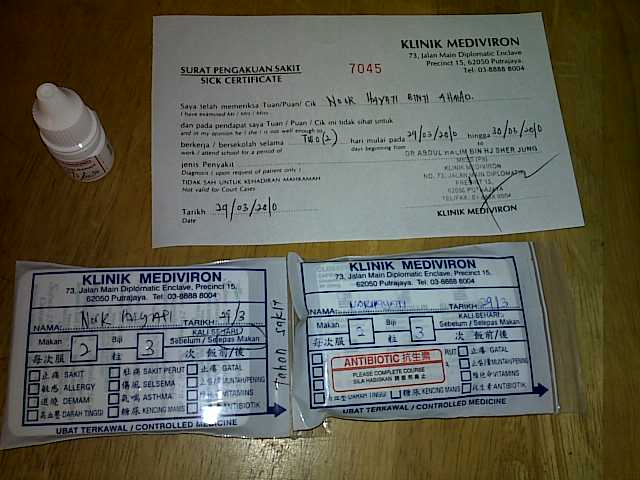 KLINIK MEDIVIRON
73, Jalan Main Diplomatic Enclave
Precinct 15, 62050 Putrajaya.
Tel: 03-8888 8004
SURAT PENGAKUAN SAKIT
SICK CERTIFICATE
7045
Saya telah memeriksa Tuan/Puan/ Cik NOOR HAYATI BINTI AHMAD.
I have examined Mr / Mrs / Miss
dan pada pendapat saya Tuan / Puan / Cik ini tidak sihat untuk
and in my opinion he / she is not well enough to
berkerja / bersekolah selama TWO (2) hari mulai pada 29/03/2010 hingga 30/03/2010
work / attend school for a period of days beginning from to
DR ABDUL HALIM BIN HJ SHER JUNG
jenis Penyakit
Diagnosis ( upon request of patient only )
KLINIK MEDIVIRON
NO. 73, JALAN MAIN DIPLOMATIC
TIDAK SAH UNTUK KEHADIRAN MAHKAMAH
Not valid for Court Cases
62050 PUTRAJAYA
Tarikh 29/03/2010
Date
KLINIK MEDIVIRON
KLINIK MEDIVIRON
73, Jalan Diplomatic Enclave, Precinct 15,
62050 Putrajaya. Tel: 03-8888 8004
NAMA: NOOR HAYATI TARIKH: 29/3
Makan 2 Biji 3 KALI SEHARI
Sebelum / Selepas Makan
每次服 粒 次 飯前/後
止痛 SAKIT 肚痛 SAKIT PERUT 止痒 GATAL
敏感 ALLERGY 傷風 SELSEMA MUNTAH/PENING
退燒 DEMAM 氣喘 ASTHMA VITAMINS
高血壓 DARAH TINGGI 糖尿 KENCING MANIS ANTIBIOTIK
UBAT TERKAWAL / CONTROLLED MEDICINE
Tahan Sakit
KLINIK MEDIVIRON
73, Jalan Diplomatic Enclave, Precinct 15,
62050 Putrajaya. Tel: 03-8888 8004
NAMA: NOORHAYATI TARIKH: 29/3
Makan 2 Biji 3 KALI SEHARI
Sebelum / Selepas Makan
每次服 粒 次 飯前/後
ANTIBIOTIC 抗生素
PLEASE COMPLETE COURSE
SILA HABISKAN
止痒 GATAL
MUNTAH/PENING
VITAMINS
DARAH TINGGI 糖尿 KENCING MANIS 抗生素 ANTIBIOTIK
UBAT TERKAWAL / CONTROLLED MEDICINE